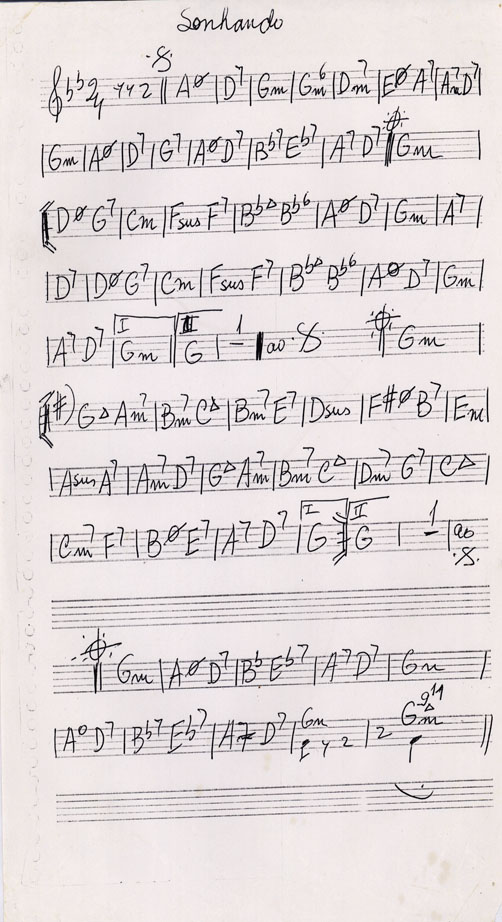 Sonhando
2/4 | Aø | D7 | Gm | Gm6 | Dm7 | Eø A7 | Am7 D7
| Gm | Aø | D7 | G7 | Aø D7 | Bb7 Eb7 | A7 D7 | Gm |
Dø G7 | Cm | Fsus F7 | BbΔ Bb6 | Aø D7 | Gm | A7 |
| D7 | Dø G7 | Cm | Fsus F7 | BbΔ Bb6 | Aø D7 | Gm |
| A7 D7 | I Gm | II G | 1 | ao 𝄋 𝄌 Gm |
GΔ Am7 | Bm7 CΔ | Bm7 E7 | Dsus | F#ø B7 | Em |
| Asus A7 | Am7 D7 | GΔ Am7 | Bm7 CΔ | Dm7 G7 | CΔ |
| Cm7 F7 | Bø E7 | A7 D7 | I G | II G | 1 | ao 𝄋
𝄌 Gm | Aø D7 | Bb Eb7 | A7 D7 | Gm |
| Aº D7 | Bb7 Eb7 | A7 D7 | Gm | 2 Gm